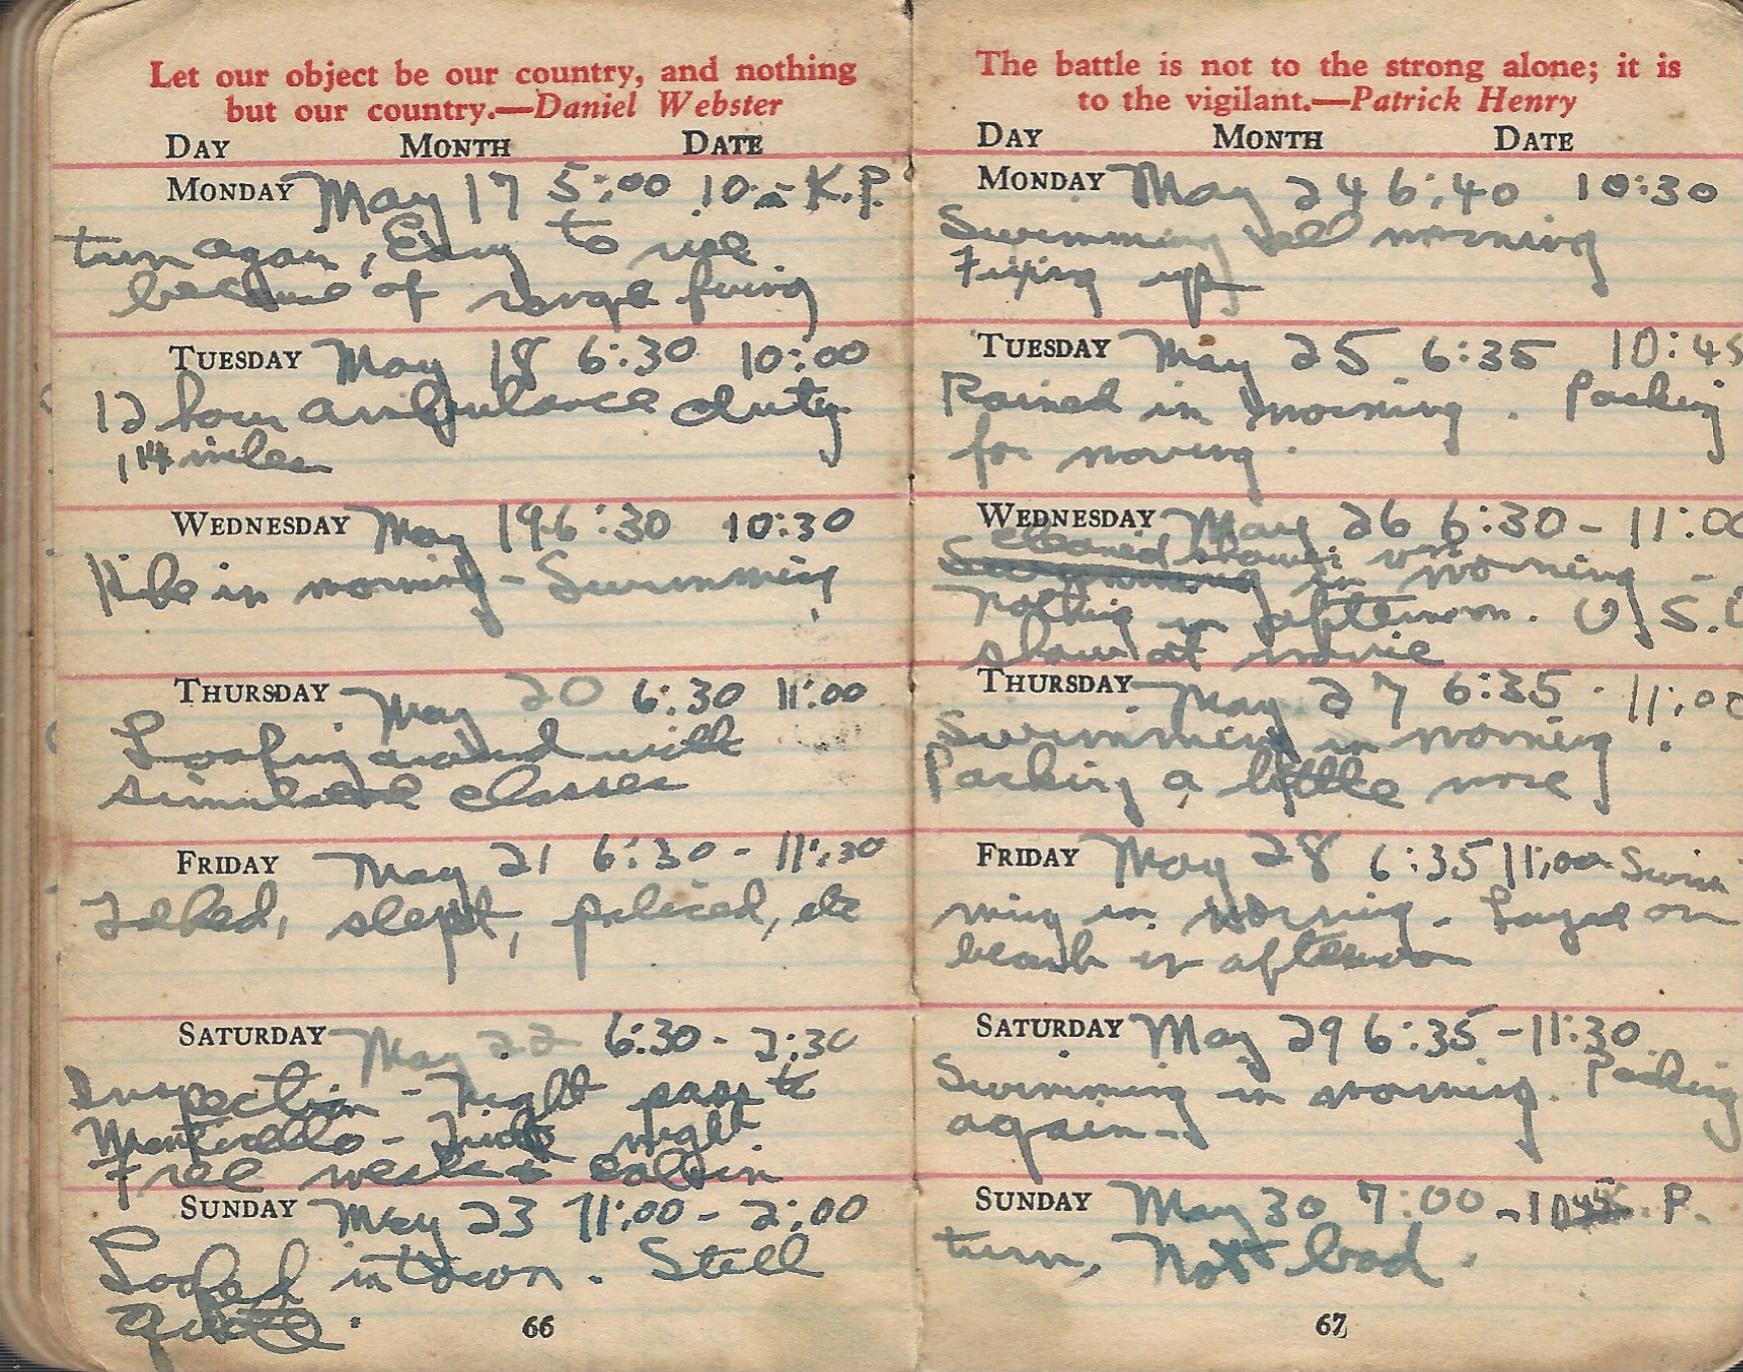 Let our object be our country, and nothing
but our country.—Daniel Webster
DAY MONTH DATE
MONDAY May 17 5:00 10:- K.P.
turn again, Easy to use
because of range firing
TUESDAY May 18 6:30 10:00
12 hour ambulance duty
114 miles
WEDNESDAY May 19 6:30 10:30
Hike in morning - Swimming
THURSDAY May 20 6:30 11:00
Loafing around with
simulated classes
FRIDAY May 21 6:30 - 11:30
Talked, slept, policed, etc
SATURDAY May 22 6:30 - 2:30
Inspection - Night pass to
Monticello - night
Free cabin
SUNDAY May 23 11:00 - 2:00
Loafed in town. Still
quiet.
66
The battle is not to the strong alone; it is
to the vigilant.—Patrick Henry
DAY MONTH DATE
MONDAY May 24 6:40 10:30
Swimming all morning
Fixing up
TUESDAY May 25 6:35 10:45
Rained in morning. Packing
for moving.
WEDNESDAY May 26 6:30 - 11:00
cleaned shower
Swimming in morning -
nothing in afternoon. U.S.O
show at movie
THURSDAY May 27 6:35 - 11:00
Swimming in morning.
Packing a little more
FRIDAY May 28 6:35 11:00 Swim
ming in morning - Layed on
beach in afternoon
SATURDAY May 29 6:35 - 11:30
Swimming in morning. Packing
again -
SUNDAY May 30 7:00 - 10 P.
turn, Not bad.
67